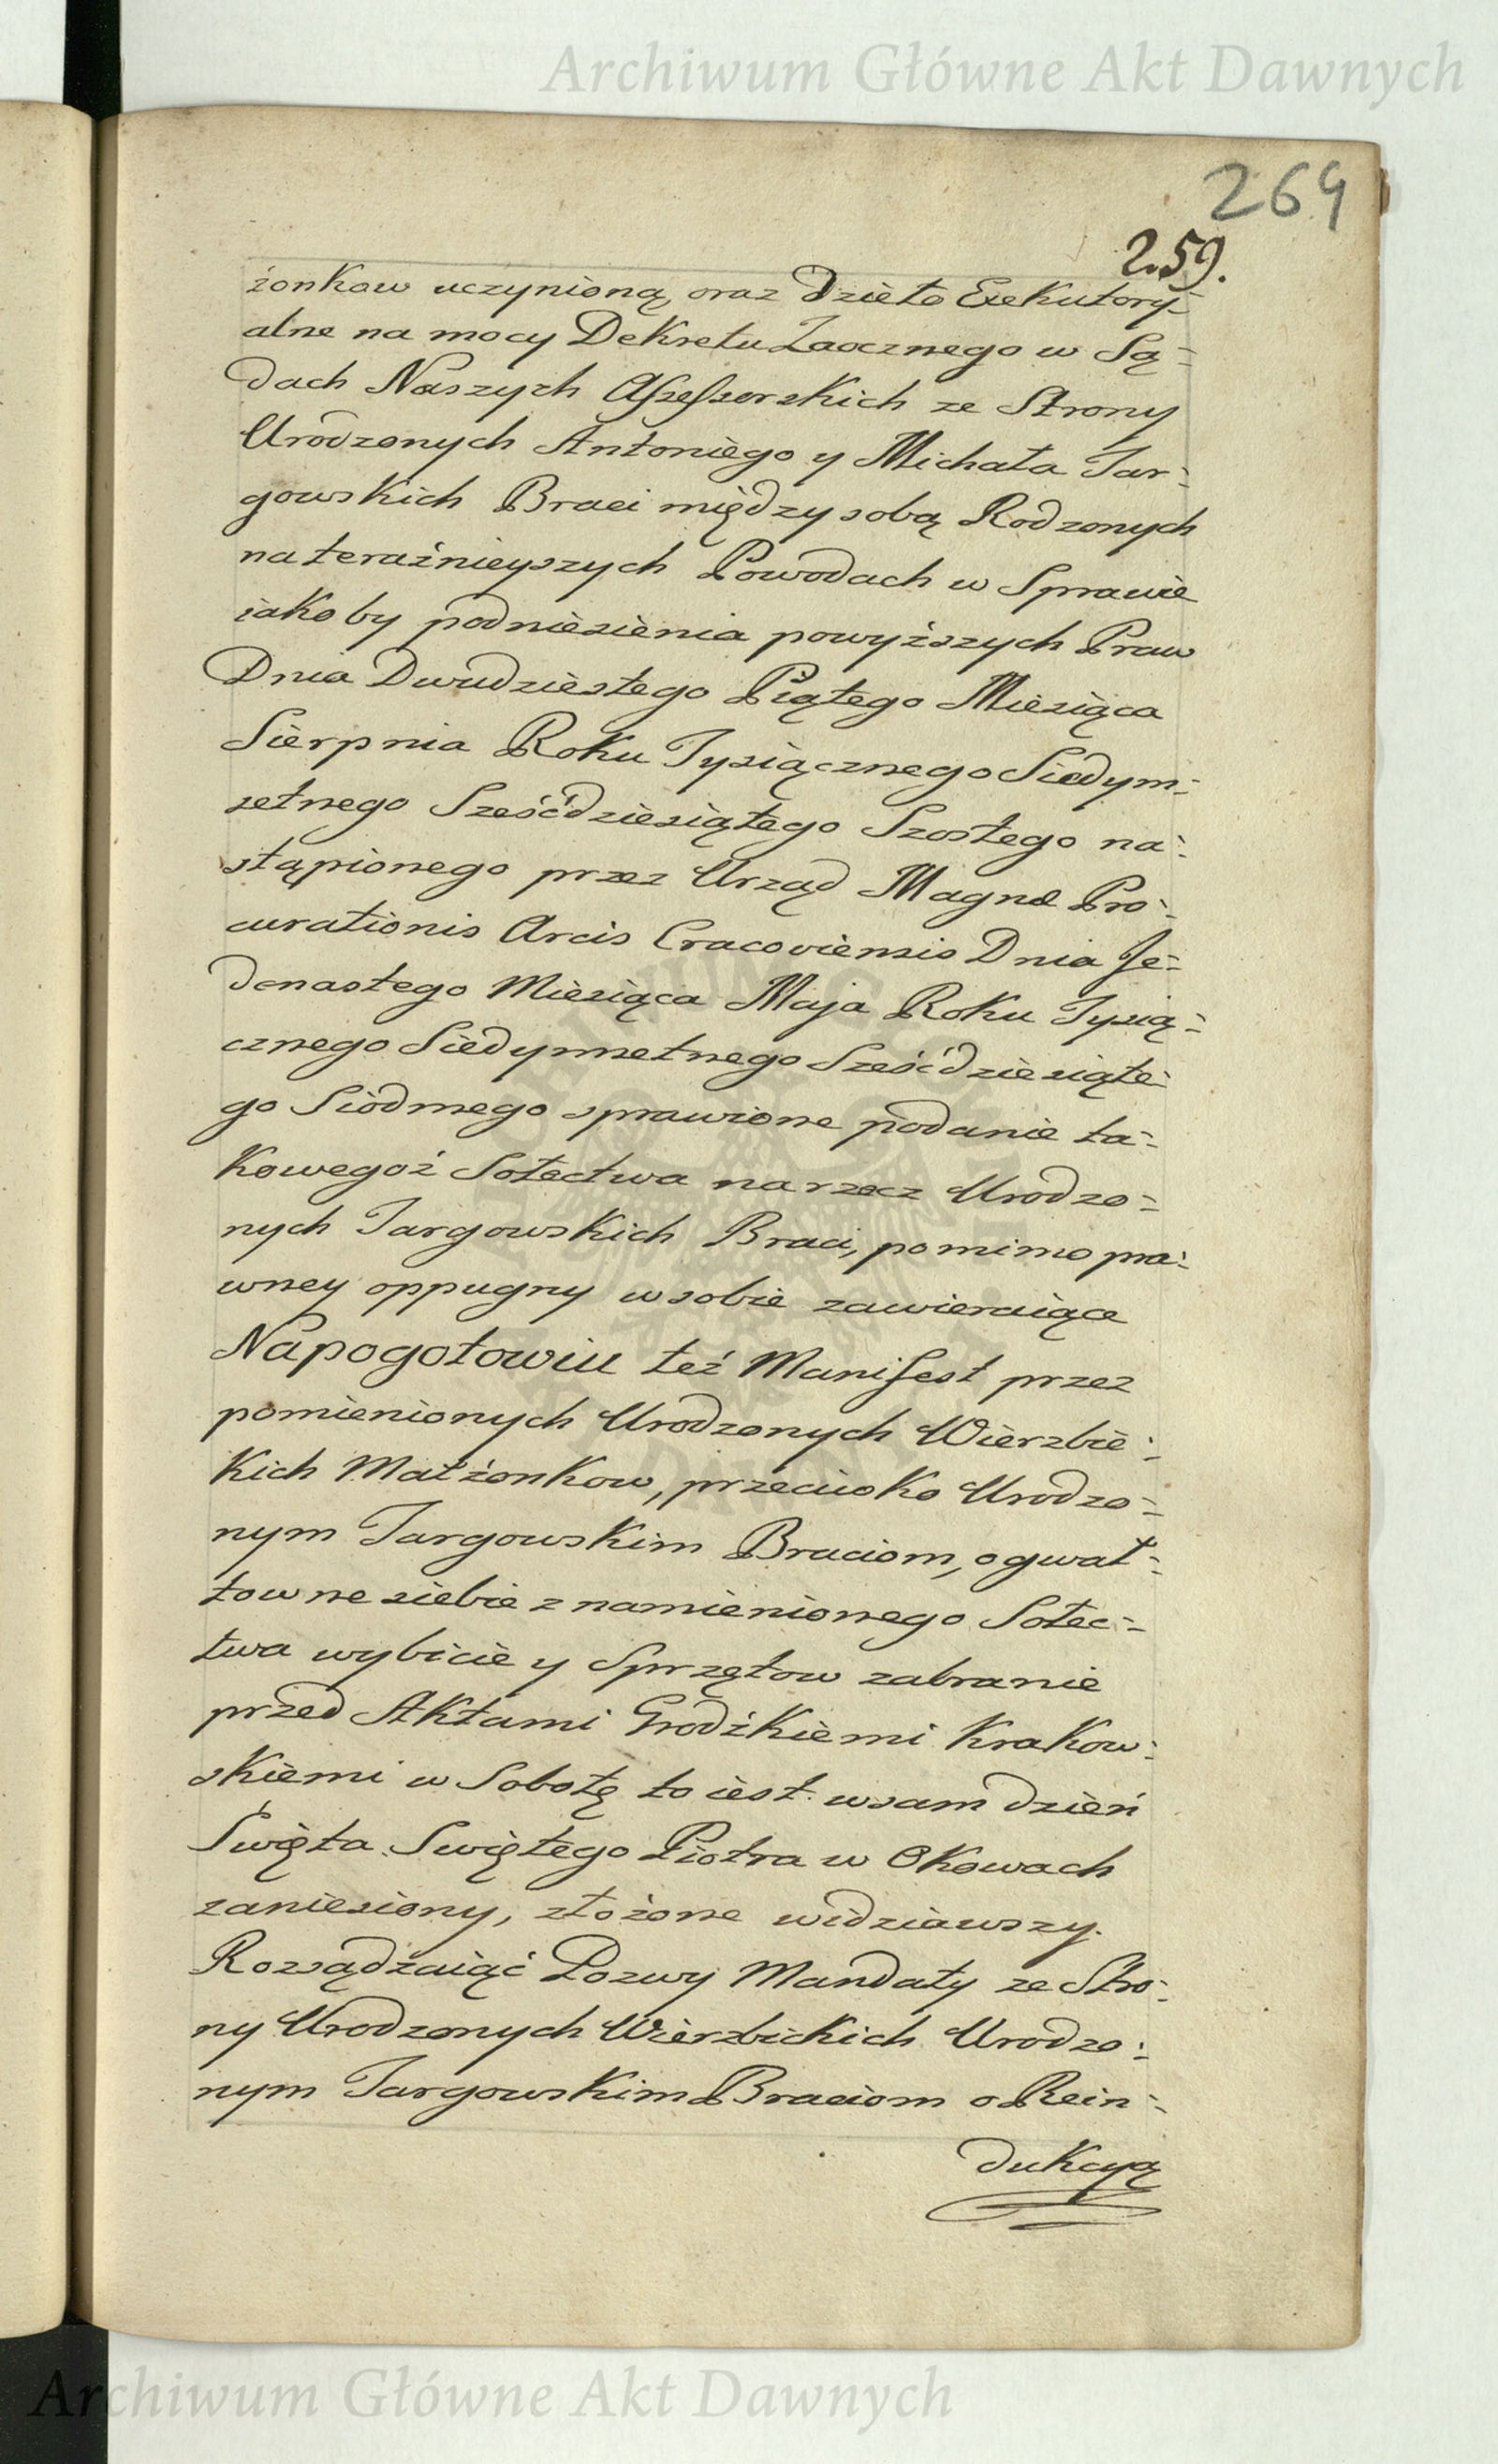 Archiwum Główne Akt Dawnych
264
259.
żonkow uczynioną, oraz Dzieło Exekutory-
alne na mocy Dekretu Zaocznego w Są-
dach Naszych Assessorskich ze Strony
Urodzonych Antoniego y Michała Tar-
gowskich Braci między sobą Rodzonych
na teraźnieyszych Powodach w Sprawie
iakoby podniesienia powyższych Praw
Dnia Dwudziestego Piątego Miesiąca
Sierpnia Roku Tysiącznego Siedym-
setnego Sześćdziesiątego Szostego na-
stąpionego przez Urząd Magnæ Pro-
curationis Arcis Cracoviensis Dnia Je-
denastego Miesiąca Maja Roku Tysią-
cznego Siedymsetnego Sześćdziesiąte-
go Siodmego sprawione podanie ta-
kowegoż Sołectwa na rzecz Urodzo-
nych Targowskich Braci, pomimo pra-
wney oppugny w sobie zawieraiące
Napogotowiu też Manifest przez
pomienionych Urodzonych Wierzbic-
kich Małżonkow, przeciwko Urodzo-
nym Targowskim Braciom, o gwał-
towne siebie z namienionego Sołec-
twa wybicie y Sprzętow zabranie
przed Aktami Grodźkiemi Krakow-
skiemi w Sobotę to iest w sam dzień
Święta Swiętego Piotra w Okowach
zaniesiony, złożone widziawszy.
Rozsądzaiąć Pozwy Mandaty ze Stro-
ny Urodzonych Wierzbickich Urodzo-
nym Targowskim Braciom o Rein-
dukcyą
Archiwum Główne Akt Dawnych